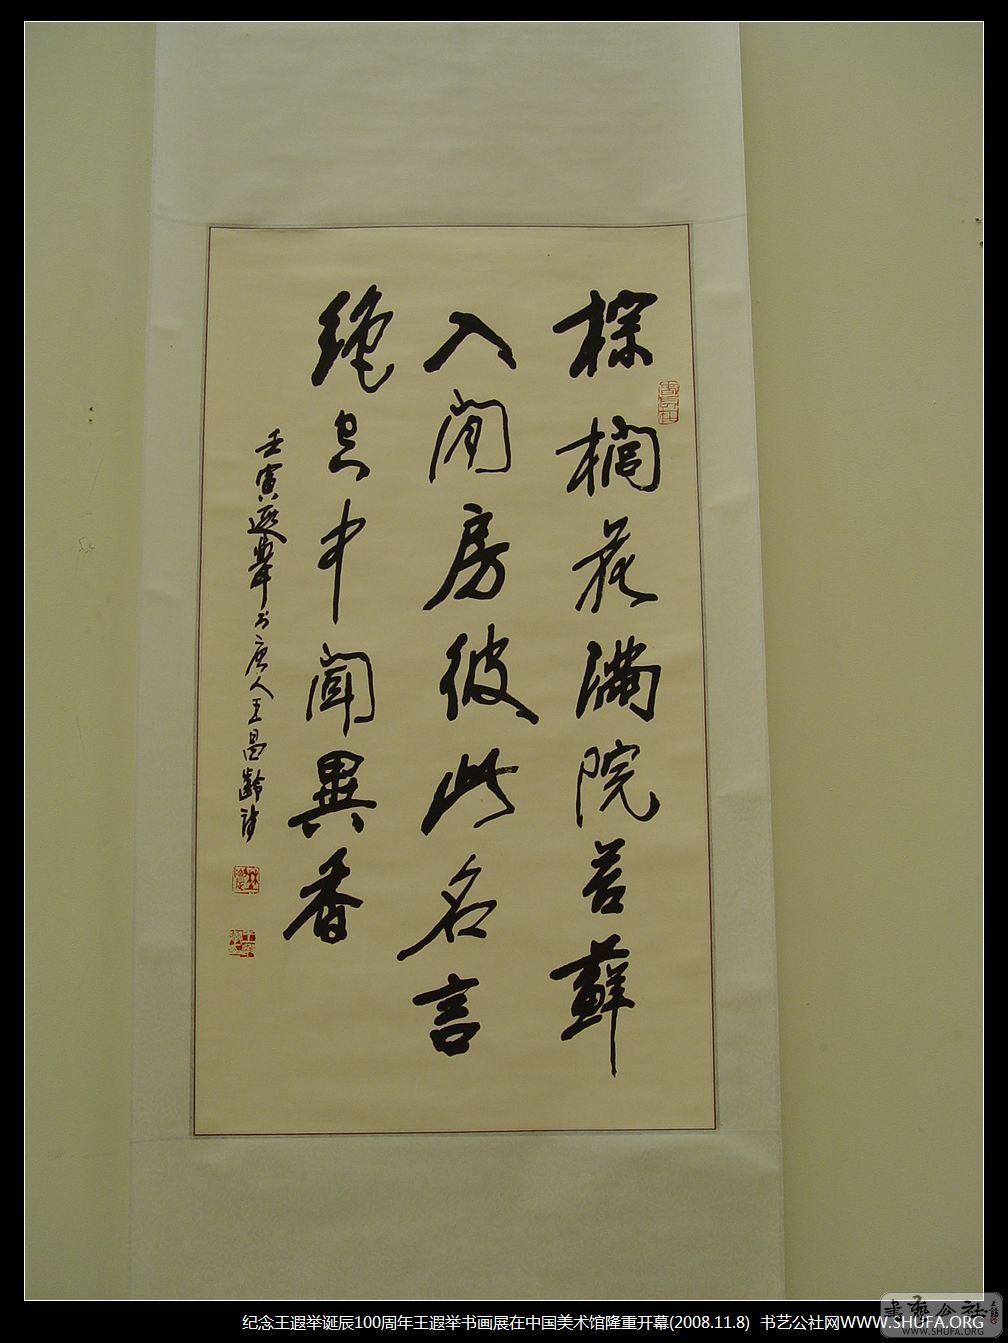 棕櫚花滿院苔蘚
入閒房彼此名言
絕空中聞異香
壬寅遐舉书唐人王昌齡詩
書藝公社
WWW.SHUFA.ORG
纪念王遐举诞辰100周年王遐举书画展在中国美术馆隆重开幕(2008.11.8) 书艺公社网WWW.SHUFA.ORG